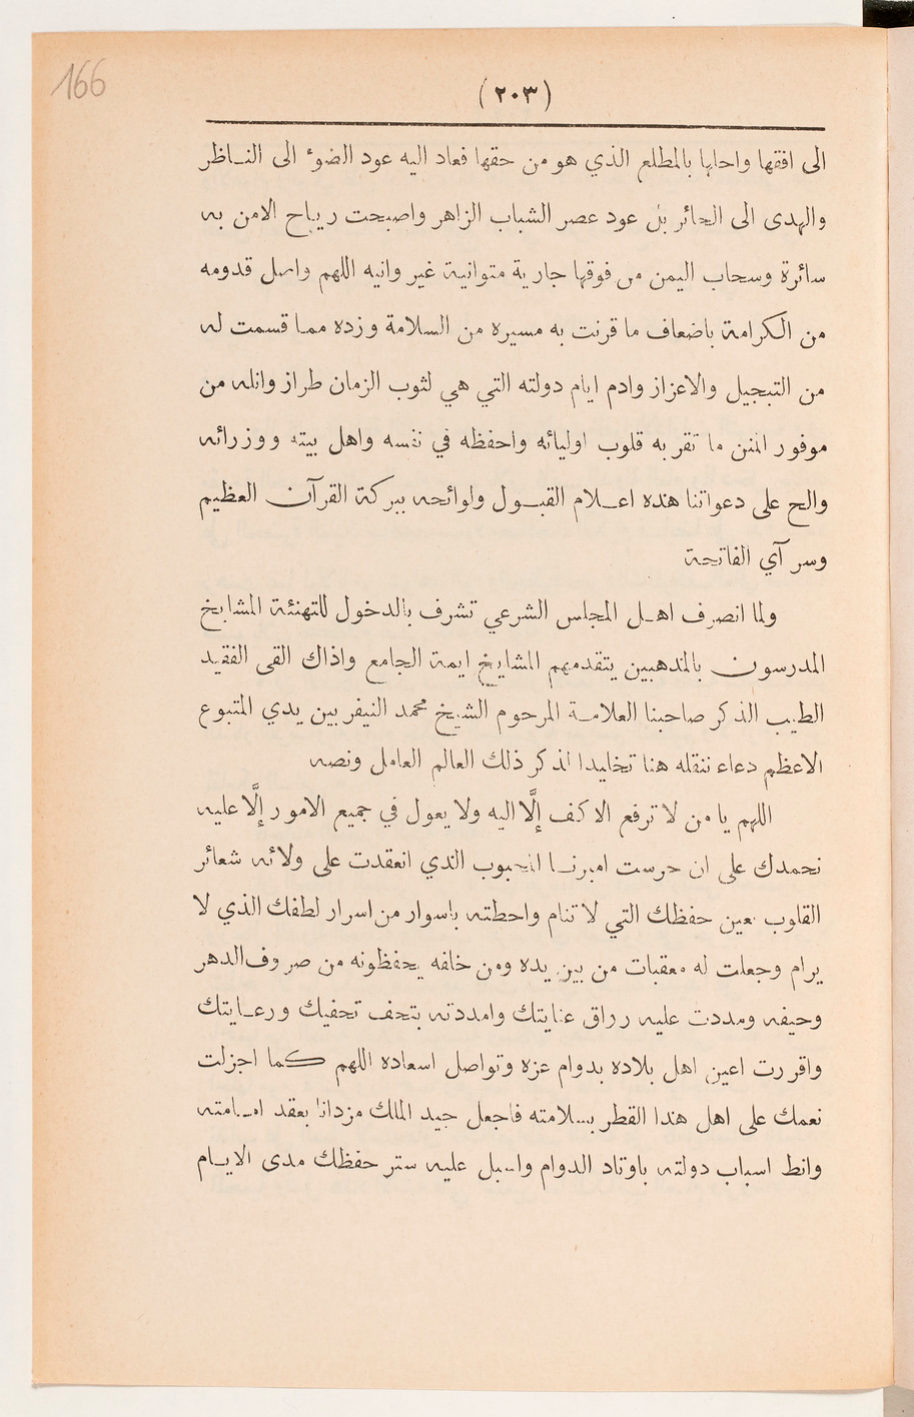 166
(٢٠٣)
الى افقها واحلها بالمطلع الذي هو من حقها فعاد اليه عود الضوء الى النـاظر
والهدى الى الحائر بل عود عصر الشباب الزاهر واصبحت رياح الامن به
سائرة وسحاب اليمن من فوقها جارية متوانية غير وانيه اللهم واصل قدومه
من الكرامة باضعاف ما قرنت به مسيره من السلامة وزده مما قسمت له
من التبجيل والاعزاز وادم ايام دولته التي هي لثوب الزمان طراز وانله من
موفور المنن ما تقر به قلوب اوليائه واحفظه في نفسه واهل بيته ووزرائه
والح على دعواتنا هذه اعـلام القبـول ولوائحه ببركة القرآن العظيم
وسر آي الفاتحة
ولما انصرف اهـل المجلس الشرعي تشرف بالدخول للتهنئة المشايخ
المدرسون بالمذهبين يتقدمهم المشايخ ايمة الجامع واذاك القى الفقيد
الطيب الذكر صاحبنا العلامـة المرحوم الشيخ محمد النيفر بين يدي المتبوع
الاعظم دعاء ننقله هنا تخليدا لذكر ذلك العالم العامل ونصه
اللهم يا من لا ترفع الاكف إلَّا اليه ولا يعول في جميع الامور إلَّا عليه
نحمدك على ان حرست اميرنـا المحبوب الذي انعقدت على ولائه شعائر
القلوب بعين حفظك التي لا تنام واحطته باسوار من اسرار لطفك الذي لا
يرام وجعلت له معقبات من بين يده ومن خلفه يحفظونه من صروف الدهر
وحيفه ومددت عليه رواق عنايتك وامددته بتحف تحفيك ورعـايتك
واقررت اعين اهل بلاده بدوام عزه وتواصل اسعاده اللهم كما اجزلت
نعمك على اهل هذا القطر بسلامته فاجعل جيد الملك مزدانا بعقد امـامته
وانط اسباب دولته باوتاد الدوام واسبل عليه ستر حفظك مدى الايـام